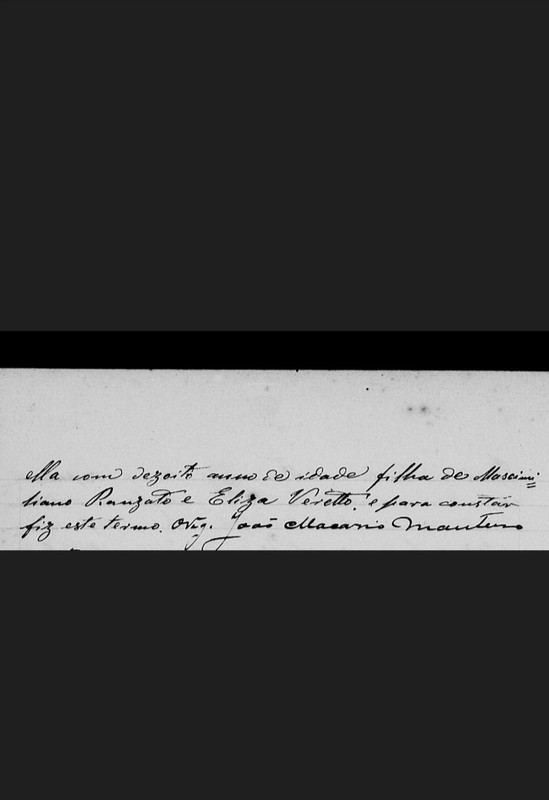 Ella com dezoito anno de idade filha de Moscimi=
liano Ranzato e Eliza Veretto, e para constar
fiz este termo. O Vig. João Macario Monteiro